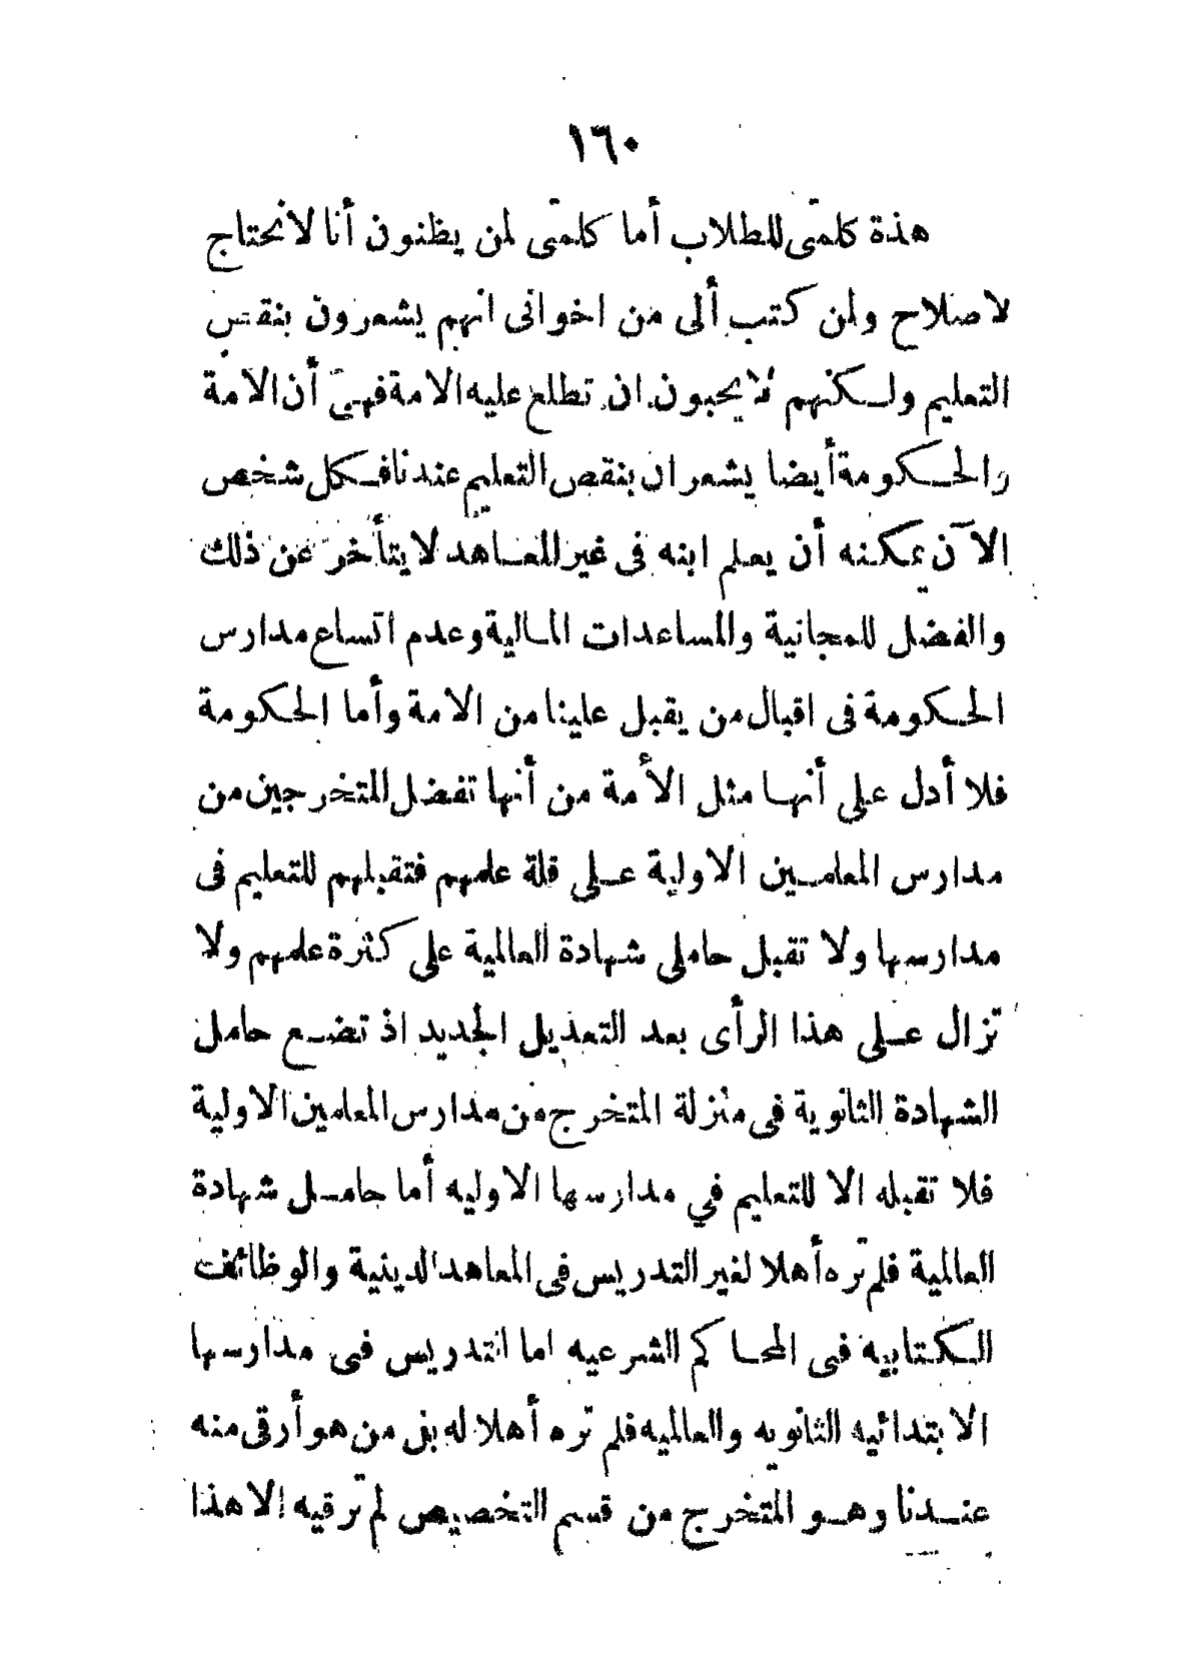 ١٦٠
هذة كلمتى للطلاب أما كلمتى لمن يظنون أنا لانحتاج
لاصلاح ولمن كتب ألى من اخوانى انهم يشعرون بنقص
التعليم ولكنهم لايحبون ان تطلع عليه الامة فهى أن الامة
والحكومة أيضا يشعران بنقص التعليم عندنا فكل شخص
الآن يمكنه أن يعلم ابنه فى غير المعاهد لا يتأخر عن ذلك
والفضل للمجانية والمساعدات المالية وعدم اتساع مدارس
الحكومة فى اقبال من يقبل علينا من الامة وأما الحكومة
فلا أدل على أنها مثل الأمة من أنها تفضل المتخرجين من
مدارس المعلمين الاولية على قلة علمهم فتقبلهم للتعليم فى
مدارسها ولا تقبل حاملى شهادة العالمية على كثرة علمهم ولا
تزال على هذا الرأى بعد التعديل الجديد اذ تضع حامل
الشهادة الثانوية فى منزلة المتخرج من مدارس المعلمين الاولية
فلا تقبله الا للتعليم في مدارسها الاوليه أما حامل شهادة
العالمية فلم تره أهلا لغير التدريس فى المعاهد الدينية والوظائف
الكتابيه فى المحاكم الشرعيه اما التدريس فى مدارسها
الابتدائيه الثانويه والعالميه فلم تره أهلا له بل من هو أرقى منه
عندنا وهو المتخرج من قسم التخصيص لم ترقيه إلا هذا